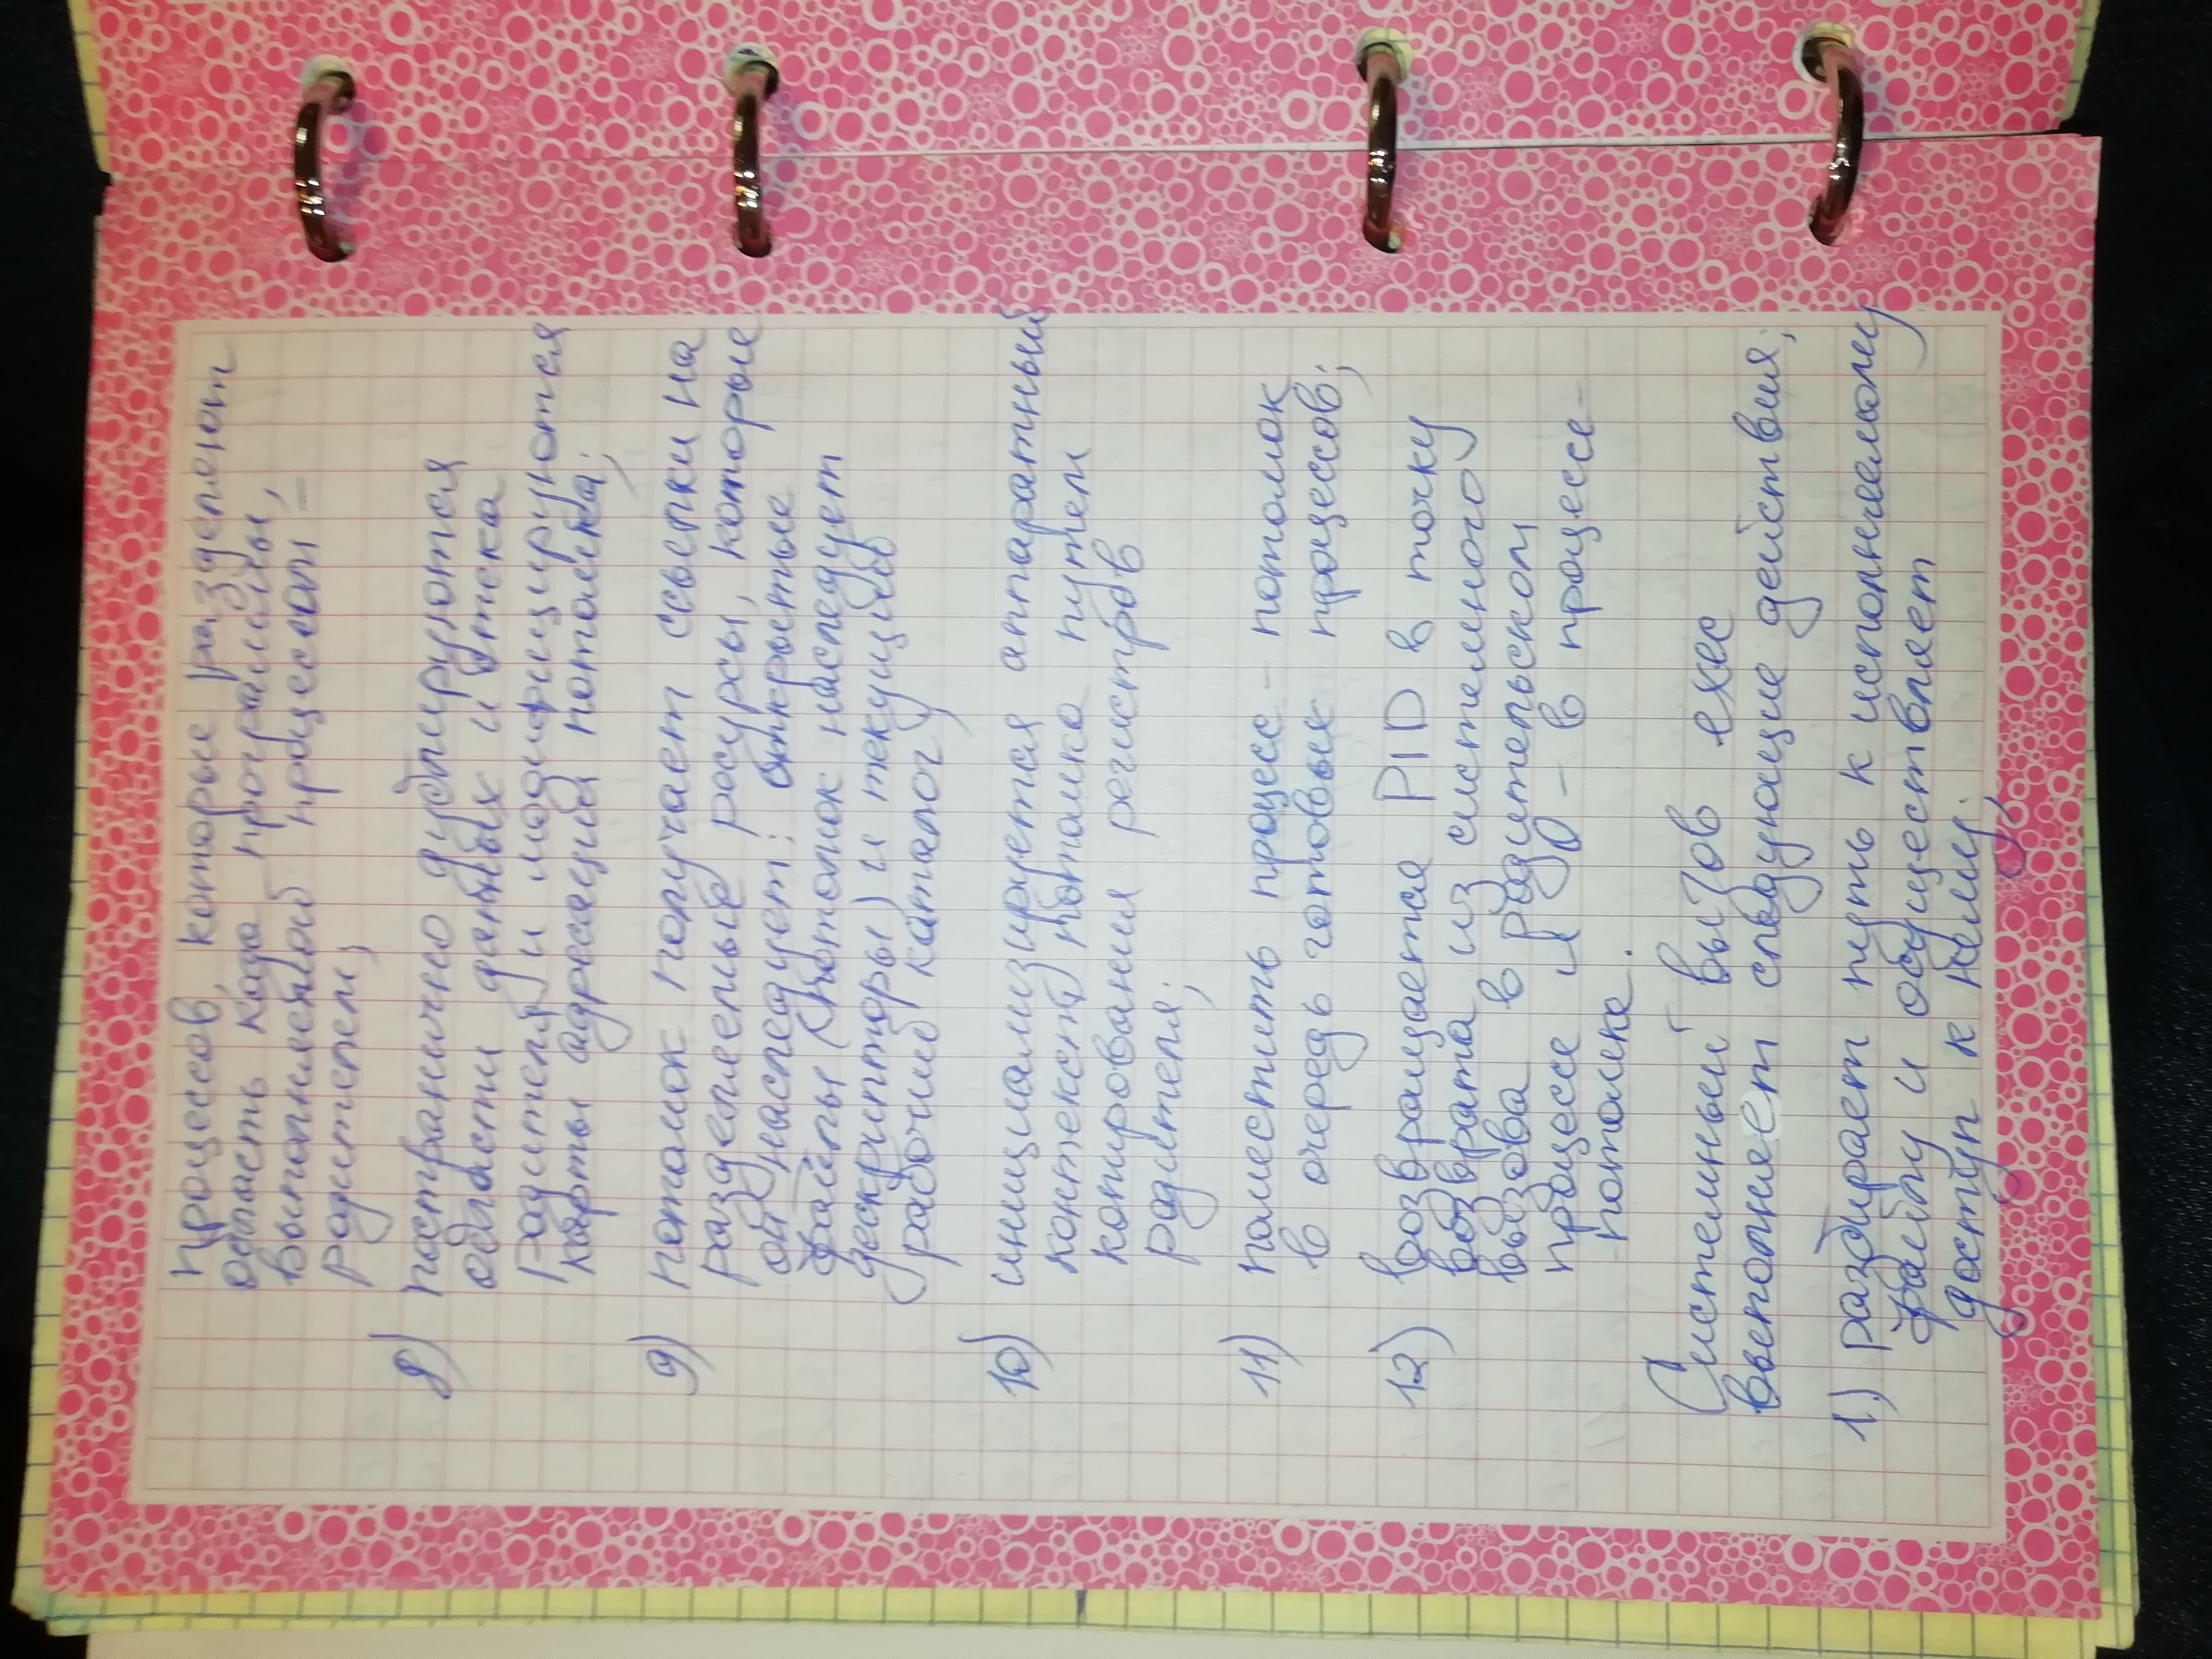 процессов, которые разделяют
область кода программы,
выполняемой процессом –
родителем;
8) постранично дублируются
области данных и стека
родителя и модифицируются
карты адресации потомка;
9) потомок получает ссылки на
разделяемые ресурсы, которые
он наследует: открытые
файлы (потомок наследует
дескрипторы) и текущий
рабочий каталог;
10) инициализируется аппаратный
контекст потомка путем
копирования регистров
родителя;
11) поместить процесс – потомок
в очередь готовых процессов;
12) возвращается PID в точку
возврата из системного
вызова в родительском
процессе и 0 – в процессе –
потомке.
Системный вызов exec
выполняет следующие действия;
1.) разбирает путь к исполняемому
файлу и осуществляет
доступ к нему;